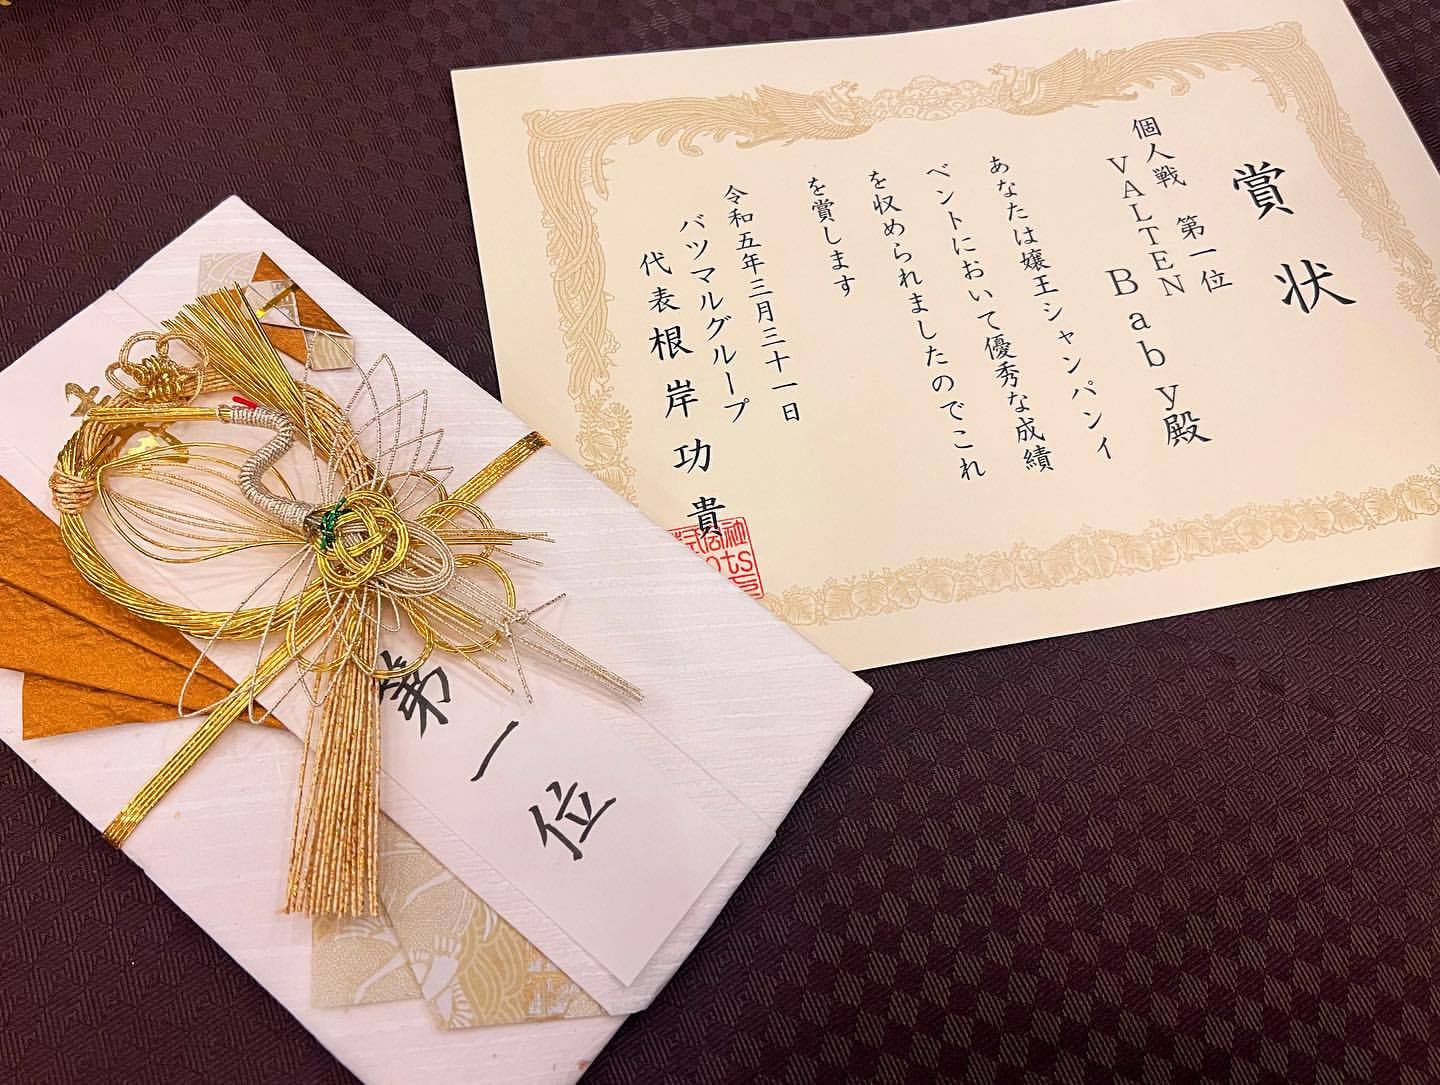 賞状
個人戦 第一位
VALTEN
Baby殿
あなたは嬢王シャンパンイ
ベントにおいて優秀な成績
を収められましたのでこれ
を賞します
令和五年三月三十一日
バツマルグループ
代表 根岸功貴
第一位